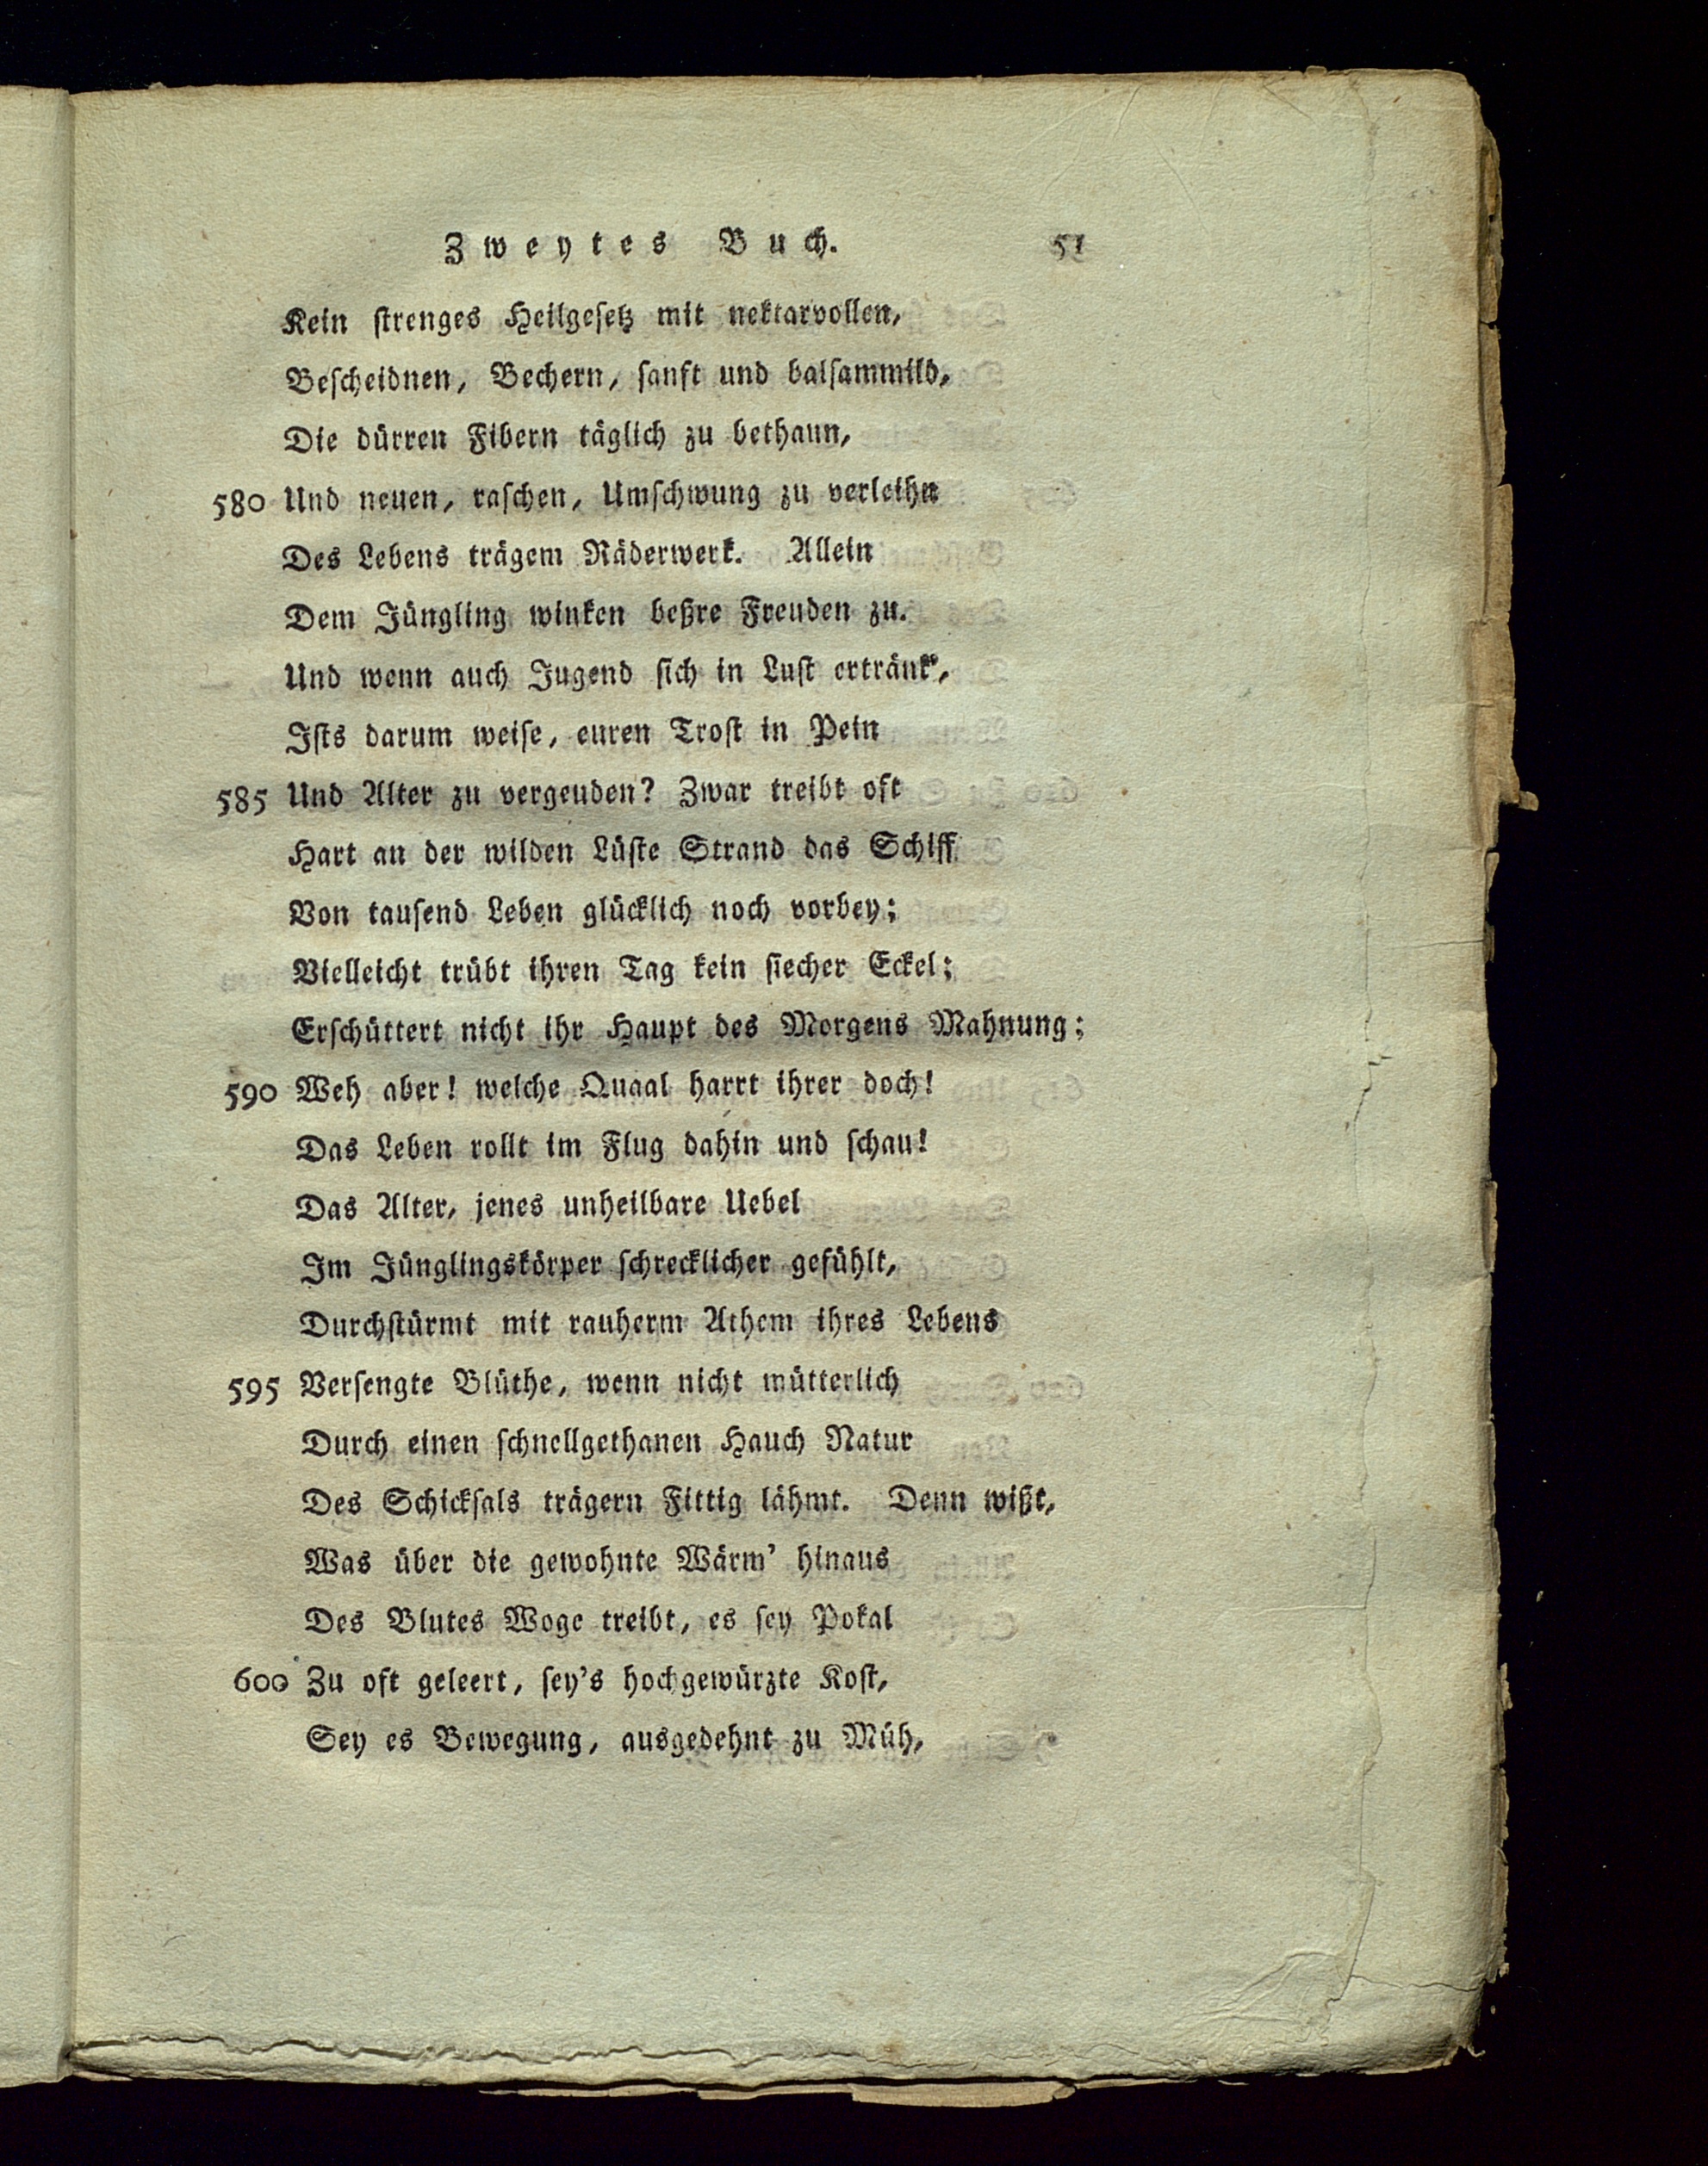 Zweytes Buch. 51
Kein strenges Heilgesetz mit nektarvollen,
Bescheidnen, Bechern, sanft und balsammild,
Die dürren Fibern täglich zu bethaun,
580 Und neuen, raschen, Umschwung zu verleihn
Des Lebens trägem Räderwerk. Allein
Dem Jüngling winken beßre Freuden zu.
Und wenn auch Jugend sich in Lust ertränk',
Ists darum weise, euren Trost in Pein
585 Und Alter zu vergeuden? Zwar treibt oft
Hart an der wilden Lüste Strand das Schiff
Von tausend Leben glücklich noch vorbey;
Vielleicht trübt ihren Tag kein siecher Eckel;
Erschüttert nicht ihr Haupt des Morgens Mahnung;
590 Weh aber! welche Quaal harrt ihrer doch!
Das Leben rollt im Flug dahin und schau!
Das Alter, jenes unheilbare Uebel
Im Jünglingskörper schrecklicher gefühlt,
Durchstürmt mit rauherm Athem ihres Lebens
595 Versengte Blüthe, wenn nicht mütterlich
Durch einen schnellgethanen Hauch Natur
Des Schicksals trägern Fittig lähmt. Denn wißt,
Was über die gewohnte Wärm' hinaus
Des Blutes Woge treibt, es sey Pokal
600 Zu oft geleert, sey's hochgewürzte Kost,
Sey es Bewegung, ausgedehnt zu Müh,